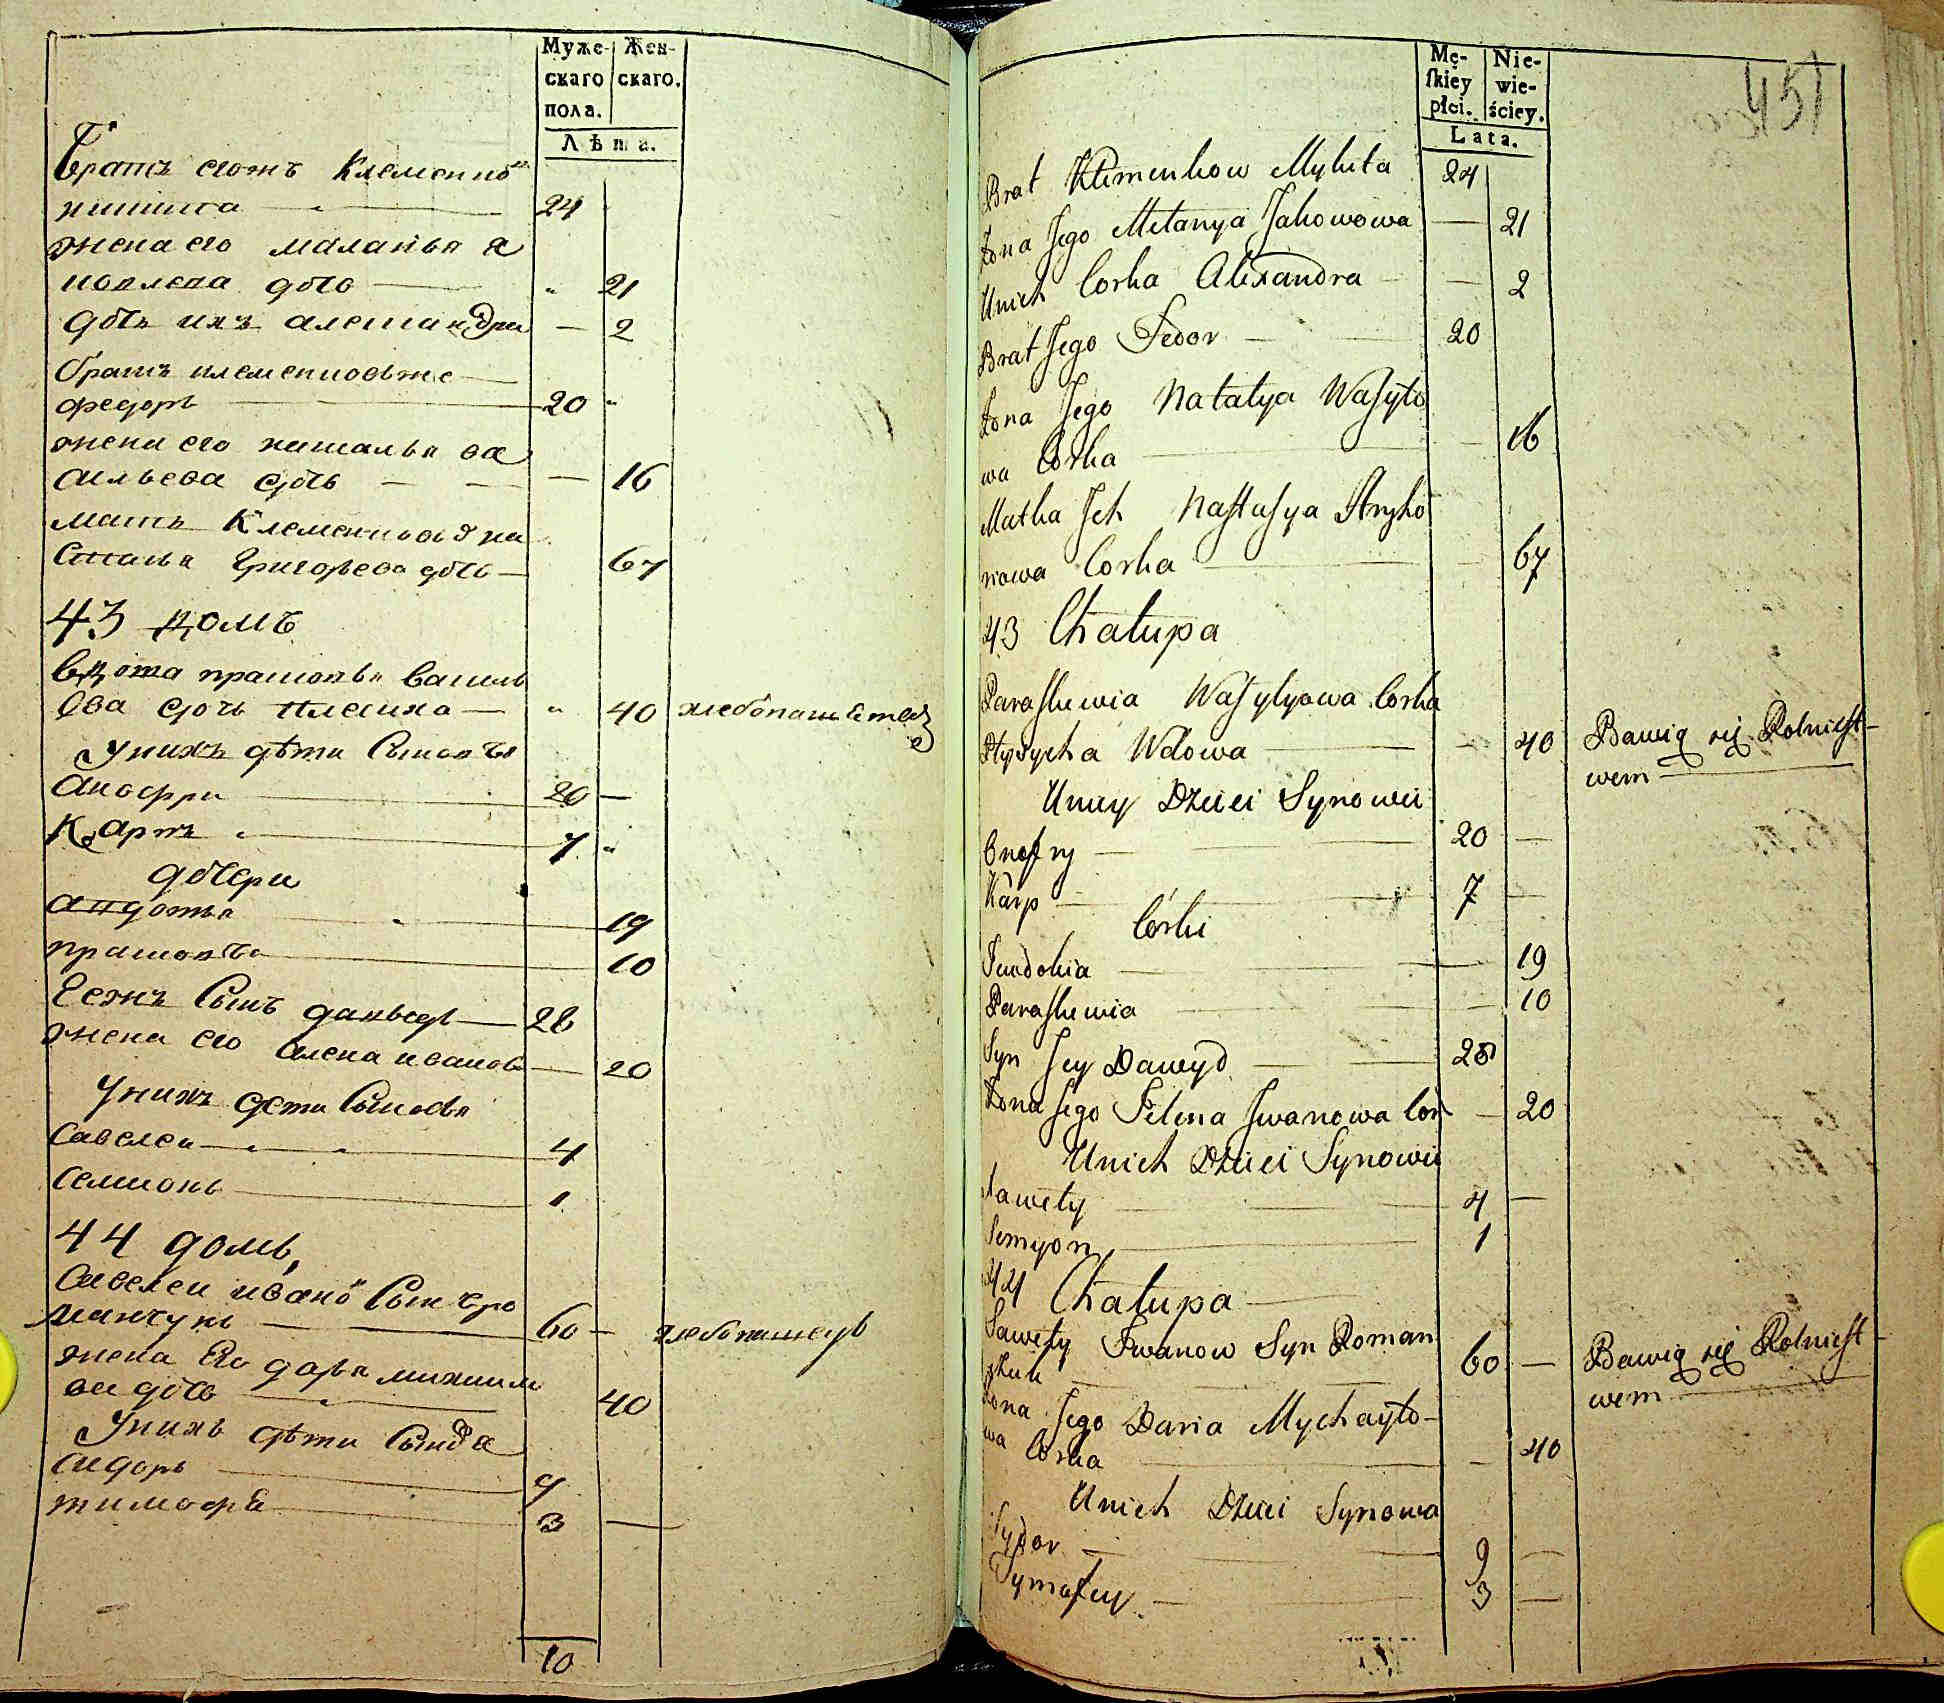 Муже-
скаго
пола.
Жен-
скаго.
Лѣта.
братъ егожъ Клеменко
никита 24
жена его маланья я
ковлева дочь 21
дочь ихъ александра 2
братъ клеменковъже
федоръ 20
жена его наталья ва
сильева дочь 16
мать Клеменкова на
стасья Григорьева дочь 67
43 домъ
вдова прасковья василь
ева дочь 40 хлебопашествъ
Унихъ дѣти Сыновья
анофри 20
Карпъ 7
дочери
авдотья 19
прасковья 10
Сынъ давыдъ 28
жена его алена иванова 20
Унихъ дети Сыновья
савелеи 4
семионъ 1
44 домъ,
савелеи ивановъ Сынъ ро
манчукъ 60 хлебопашецъ
жена Его дарья михаило
ва дочь 40
Унихъ дѣти Сынова
сидоръ 9
тимофей 3
10
Mę-
skiey
płci.
Nie-
wie-
ściey.
Lata.
451
Brat Klimenkow Mykita 24
Żona Jego Melanya Jakowowa 21
Unich Corka Alexandra 2
Brat Jego Fedor 20
Żona Jego Natalya Wasyło
wa Corka 16
Matka Ich Nastasya Hryho
riowa Corka 67
43 Chałupa
Paraskewia Wasylyowa Corka
Wdowa 40 Bawią się Rolnicst-
wem
Uniey Dzieci Synowie
Onofry 20
Karp 7
Córki
Jewdokia 19
Paraskewia 10
Syn Jey Dawyd 28
Żona Jego Helena Jwanowa Cor 20
Unich Dzieci Synowie
Sawety 4
Semyon 1
44 Chałupa
Sawety Iwanow Syn Roman
czuk 60 Bawią się Rolnicst-
wem
Żona Jego Daria Mychayło-
wa Corka 40
Unich Dzieci Synowa
Sydor 9
Tymofey 3